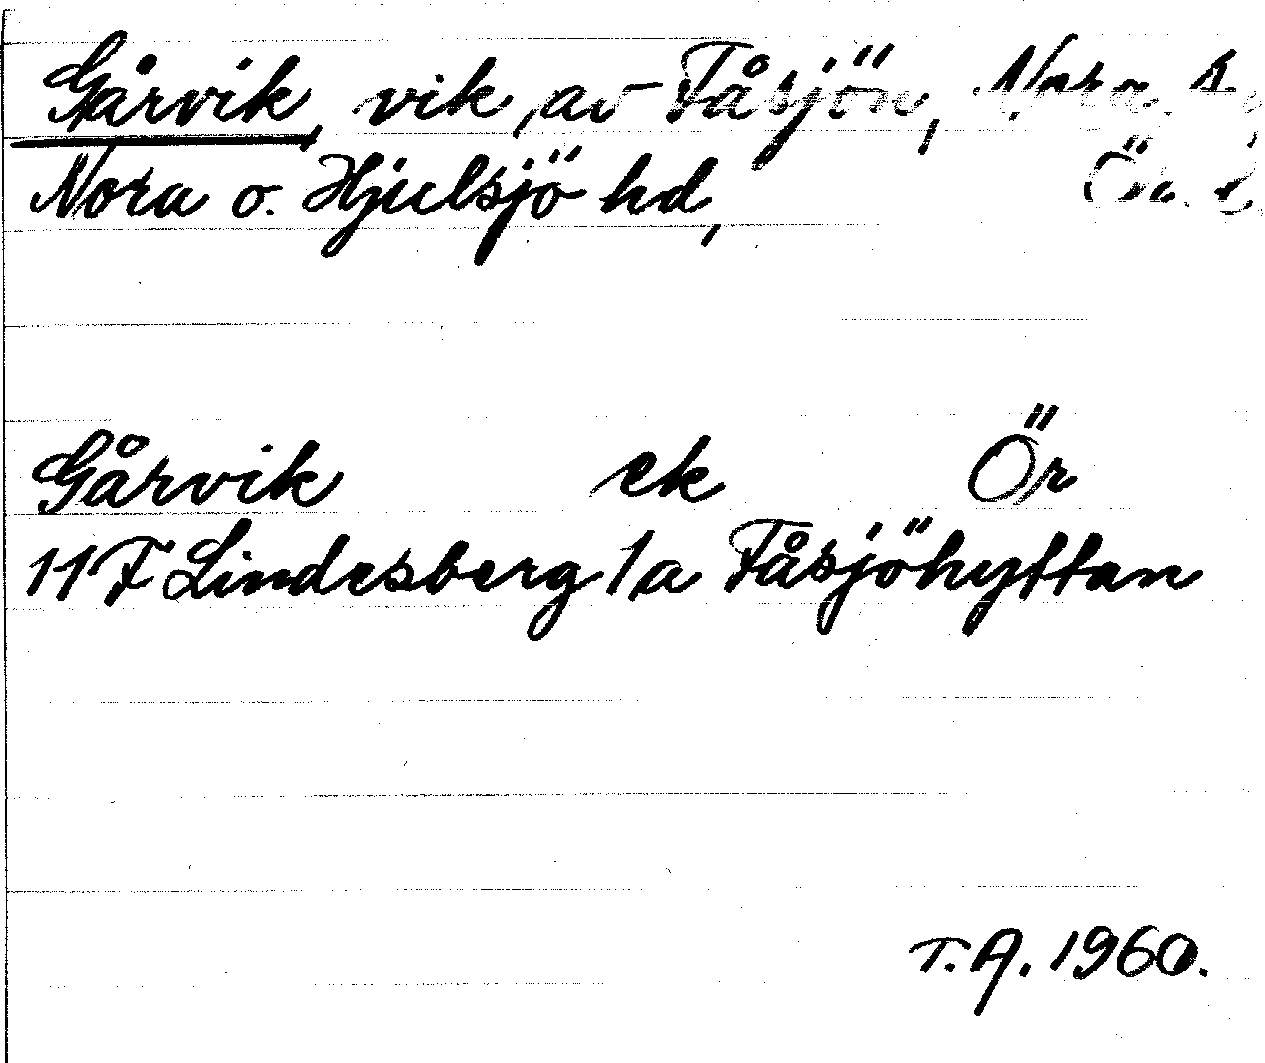 Gårvik, vik av Fåsjön, Nora
Nora o. Hjulsjö hd,
Gårvik ek Ör
11F Lindesberg 1a Fåsjöhyttan
T.A. 1960.